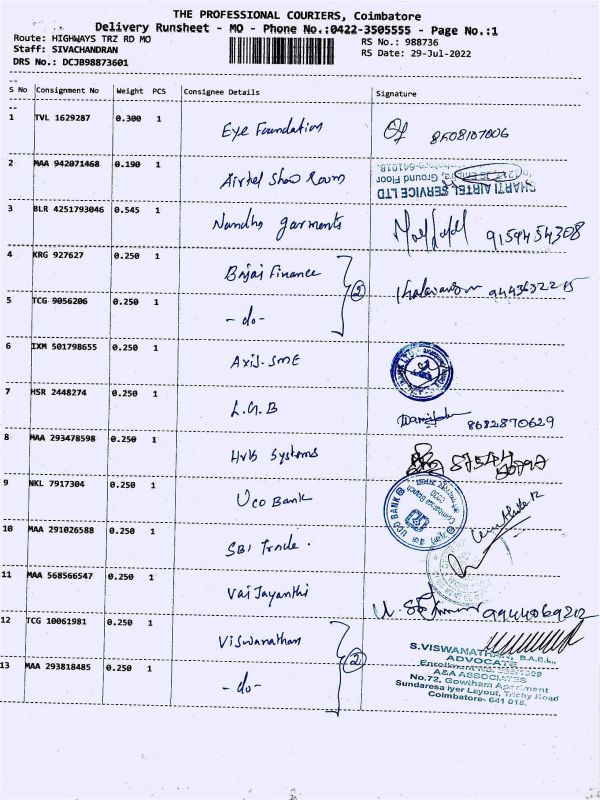 THE PROFESSIONAL COURIERS, Coimbatore
Delivery Runsheet - MO - Phone No.:0422-3505555 - Page No.:1
Route: HIGHWAYS TRZ RD MO
RS No.: 988736
Staff: SIVACHANDRAN
RS Date: 29-Jul-2022
DRS No.: DCJB98873601
S No Consignment No Weight PCS Consignee Details Signature
1 TVL 1629287 0.300 1 Eye Foundation
2 MAA 942071468 0.190 1 Airtel Show Room
BHARTI AIRTEL SERVICE LTD
Ground Floor
3 BLR 4251793046 0.545 1 Nandha garments 9159454308
4 KRG 927627 0.250 1 Bajaj Finance 2
5 TCG 9056206 0.250 1 -do-
6 IXM 501798655 0.250 1 Axis-SME
7 HSR 2448274 0.250 1 L.G.B 8682870629
8 MAA 293478598 0.250 1 HVB Systems
9 NKL 7917304 0.250 1 UCO Bank
UCO BANK
Coimbatore Branch
10 MAA 291026588 0.250 1 SBI Trade.
11 MAA 568566547 0.250 1 Vaijayanthi 9944069212
12 TCG 10061981 0.250 1 Viswanathan 2
13 MAA 293818485 0.250 1 -do-
S.VISWANATHAN, B.A.B.L.,
ADVOCATE
A&A ASSOCIATES
No.72, Gowtham Apartment
Sundaresa Iyer Layout, Trichy Road
Coimbatore- 641 018.